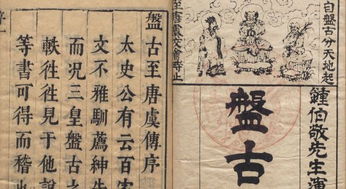 自盤古分天地起
至唐虞交會時止
鍾伯敬先生演
盤古
盤古至唐虞傳序
太史公有云百家
文不雅馴薦紳
而況三皇盤古之
軼徃徃見于他
等書可得而稽